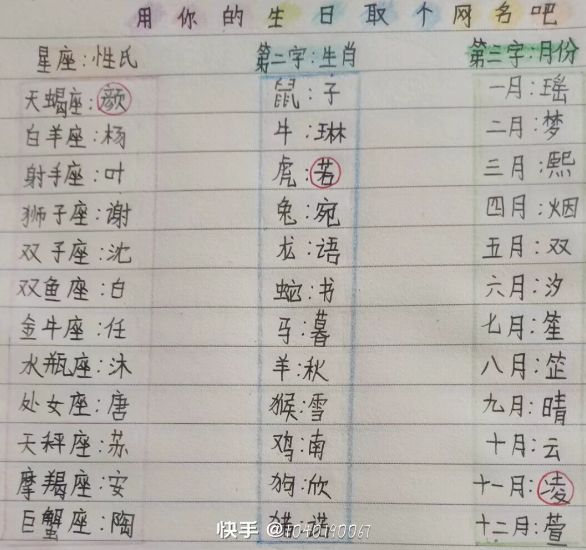 用你的生日取个网名吧
星座:性氏 第二字:生肖 第三字:月份
天蝎座:颜 鼠:子 一月:瑶
白羊座:杨 牛:琳 二月:梦
射手座:叶 虎:若 三月:熙
狮子座:谢 兔:宛 四月:烟
双子座:沈 龙:语 五月:双
双鱼座:白 蛇:书 六月:汐
金牛座:任 马:暮 七月:笙
水瓶座:沐 羊:秋 八月:芷
处女座:唐 猴:雪 九月:晴
天秤座:苏 鸡:南 十月:云
摩羯座:安 狗:欣 十一月:凌
巨蟹座:陶 猪: 十二月:萱
快手